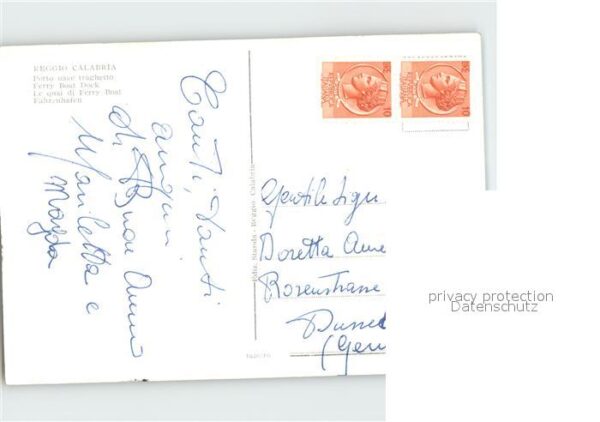 REGGIO CALABRIA
Porto nave traghetto
Ferry Boat Dock
Le quai di Ferry Boat
Fährenhafen
Tanti, Tanti
auguri
di Buon Anno
Mariletta e
Magda
Ediz. Standa - Reggio Calabria
10
10
Gentile Sign
Doretta
Rosenstrasse
Dussel
(Ger
privacy protection
Datenschutz